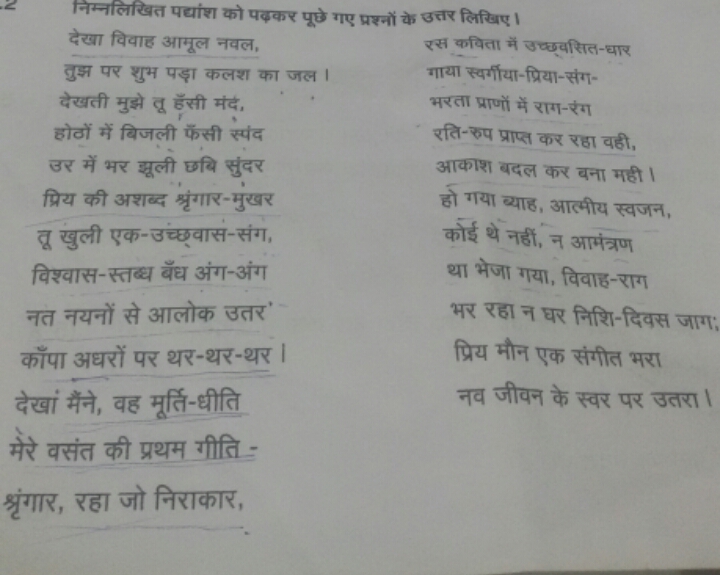 .2 निम्नलिखित पद्यांश को पढ़कर पूछे गए प्रश्नों के उत्तर लिखिए।
देखा विवाह आमूल नवल,
तुझ पर शुभ पड़ा कलश का जल।
देखती मुझे तू हँसी मंद,
होठों में बिजली फँसी स्पंद
उर में भर झूली छबि सुंदर
प्रिय की अशब्द श्रृंगार-मुखर
तू खुली एक-उच्छ्वास-संग,
विश्वास-स्तब्ध बँध अंग-अंग
नत नयनों से आलोक उतर
काँपा अधरों पर थर-थर-थर।
देखां मैंने, वह मूर्ति-धीति
मेरे वसंत की प्रथम गीति -
श्रृंगार, रहा जो निराकार,
रस कविता में उच्छ्वसित-धार
गाया स्वर्गीया-प्रिया-संग-
भरता प्राणों में राग-रंग
रति-रुप प्राप्त कर रहा वही,
आकाश बदल कर बना मही।
हो गया ब्याह, आत्मीय स्वजन,
कोई थे नहीं, न आमंत्रण
था भेजा गया, विवाह-राग
भर रहा न घर निशि-दिवस जाग;
प्रिय मौन एक संगीत भरा
नव जीवन के स्वर पर उतरा।